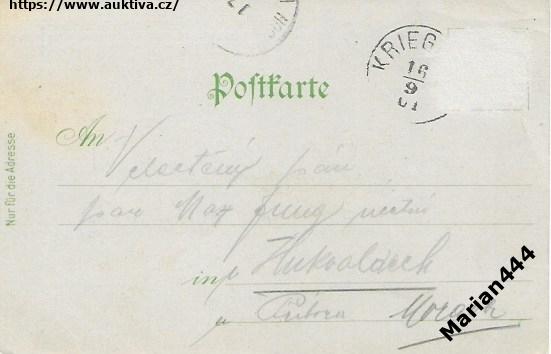 https://www.auktiva.cz/
KRIEG
16
9
01
Postkarte
An Velectěný pán
pan Max Jung
in Hukvaldech
u Příbora Morava
Nur für die Adresse.
Marian444